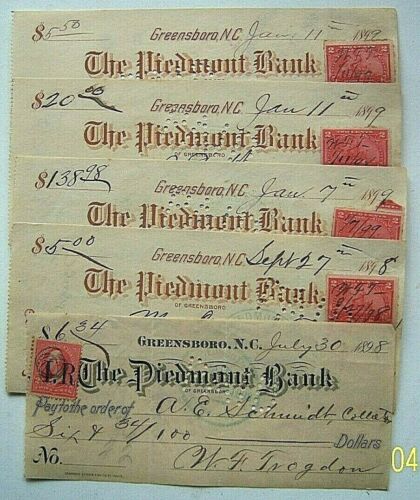 $5.50 Greensboro, N.C. Jan. 11 1899
The Piedmont Bank
2 2
$20.00 Greensboro, N.C. Jan 11 1899
The Piedmont Bank
OF GREENSBORO
2 2
$138.98 Greensboro, N.C. Jan. 7 1899
The Piedmont Bank
1/7/99
$5.00 Greensboro, N.C. Sept 27 1898
The Piedmont Bank.
OF GREENSBORO
2 2
$6.34
GREENSBORO, N.C. July 30 1898
I.R. The Piedmont Bank
OF GREENSBORO
Pay to the order of A. E. Schmidt, Collector
Six & 34/100 Dollars
No. W. F. Trogdon
04